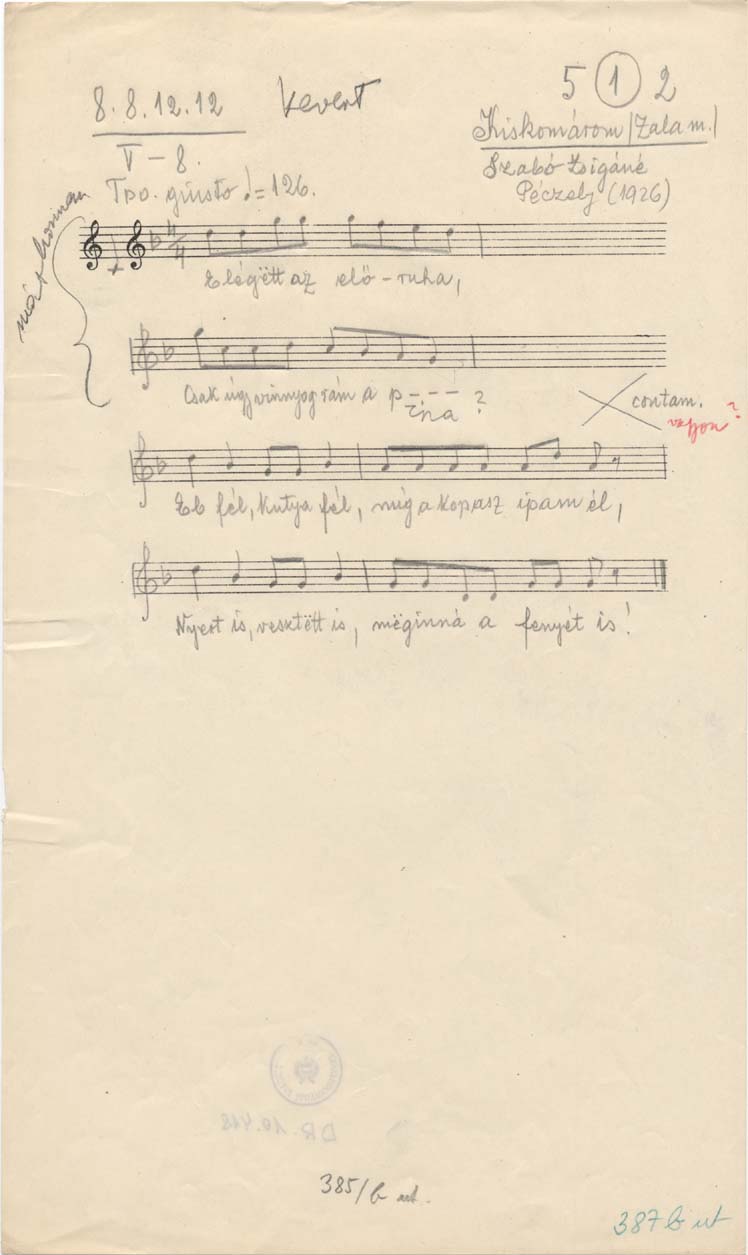 8. 8. 12. 12
V – 8.
kevert
5 1 2
Kiskomárom /Zala m./
Szabó Zsigáné
Péczely (1926)
Tpo. giusto ♩= 126.
4/4
Elégëtt az elő-ruha,
Csak úgy vinnyog rám a p - - - ?
ina
contam.
vajjon ?
Eb fél, kutya fél, míg a kopasz ipam él,
Nyert is, vesztëtt is, mëginná a fenyét is!
DR 10.418
385/b ut.
387 b ut